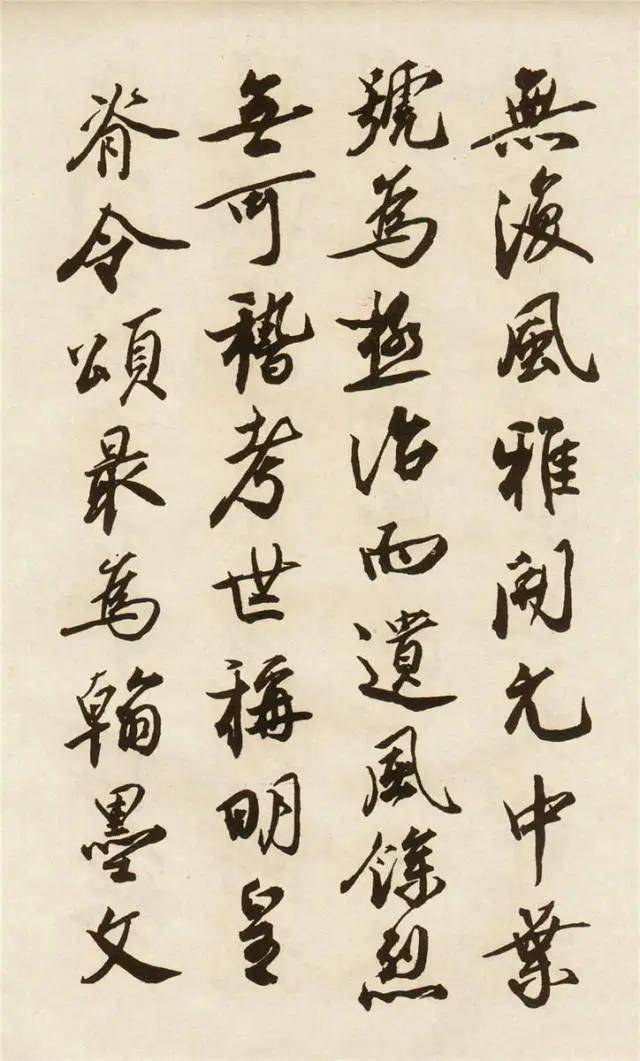 無復風雅開元中葉
號爲極治而遺風餘烈
無可稽考世稱明皇
脊令頌最爲翰墨文